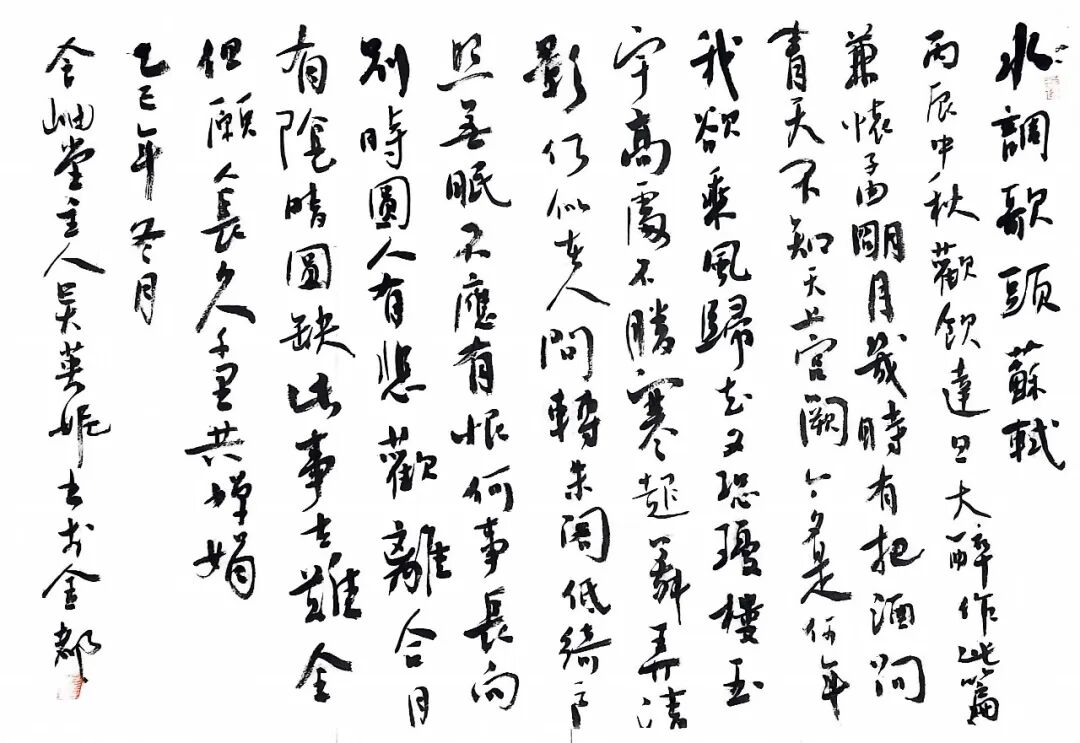 水調歌頭 蘇軾
丙辰中秋歡飲達旦大醉作此篇
兼懷子由明月幾時有把酒問
青天不知天上宮闕今夕是何年
我欲乘風歸去又恐瓊樓玉
宇高處不勝寒起舞弄清
影何似在人間轉朱閣低綺户
照無眠不應有恨何事長向
别時圓人有悲歡離合月
有陰晴圓缺此事古難全
但願人長久千里共嬋娟
乙巳年冬月
岫堂主人吳英書於金都